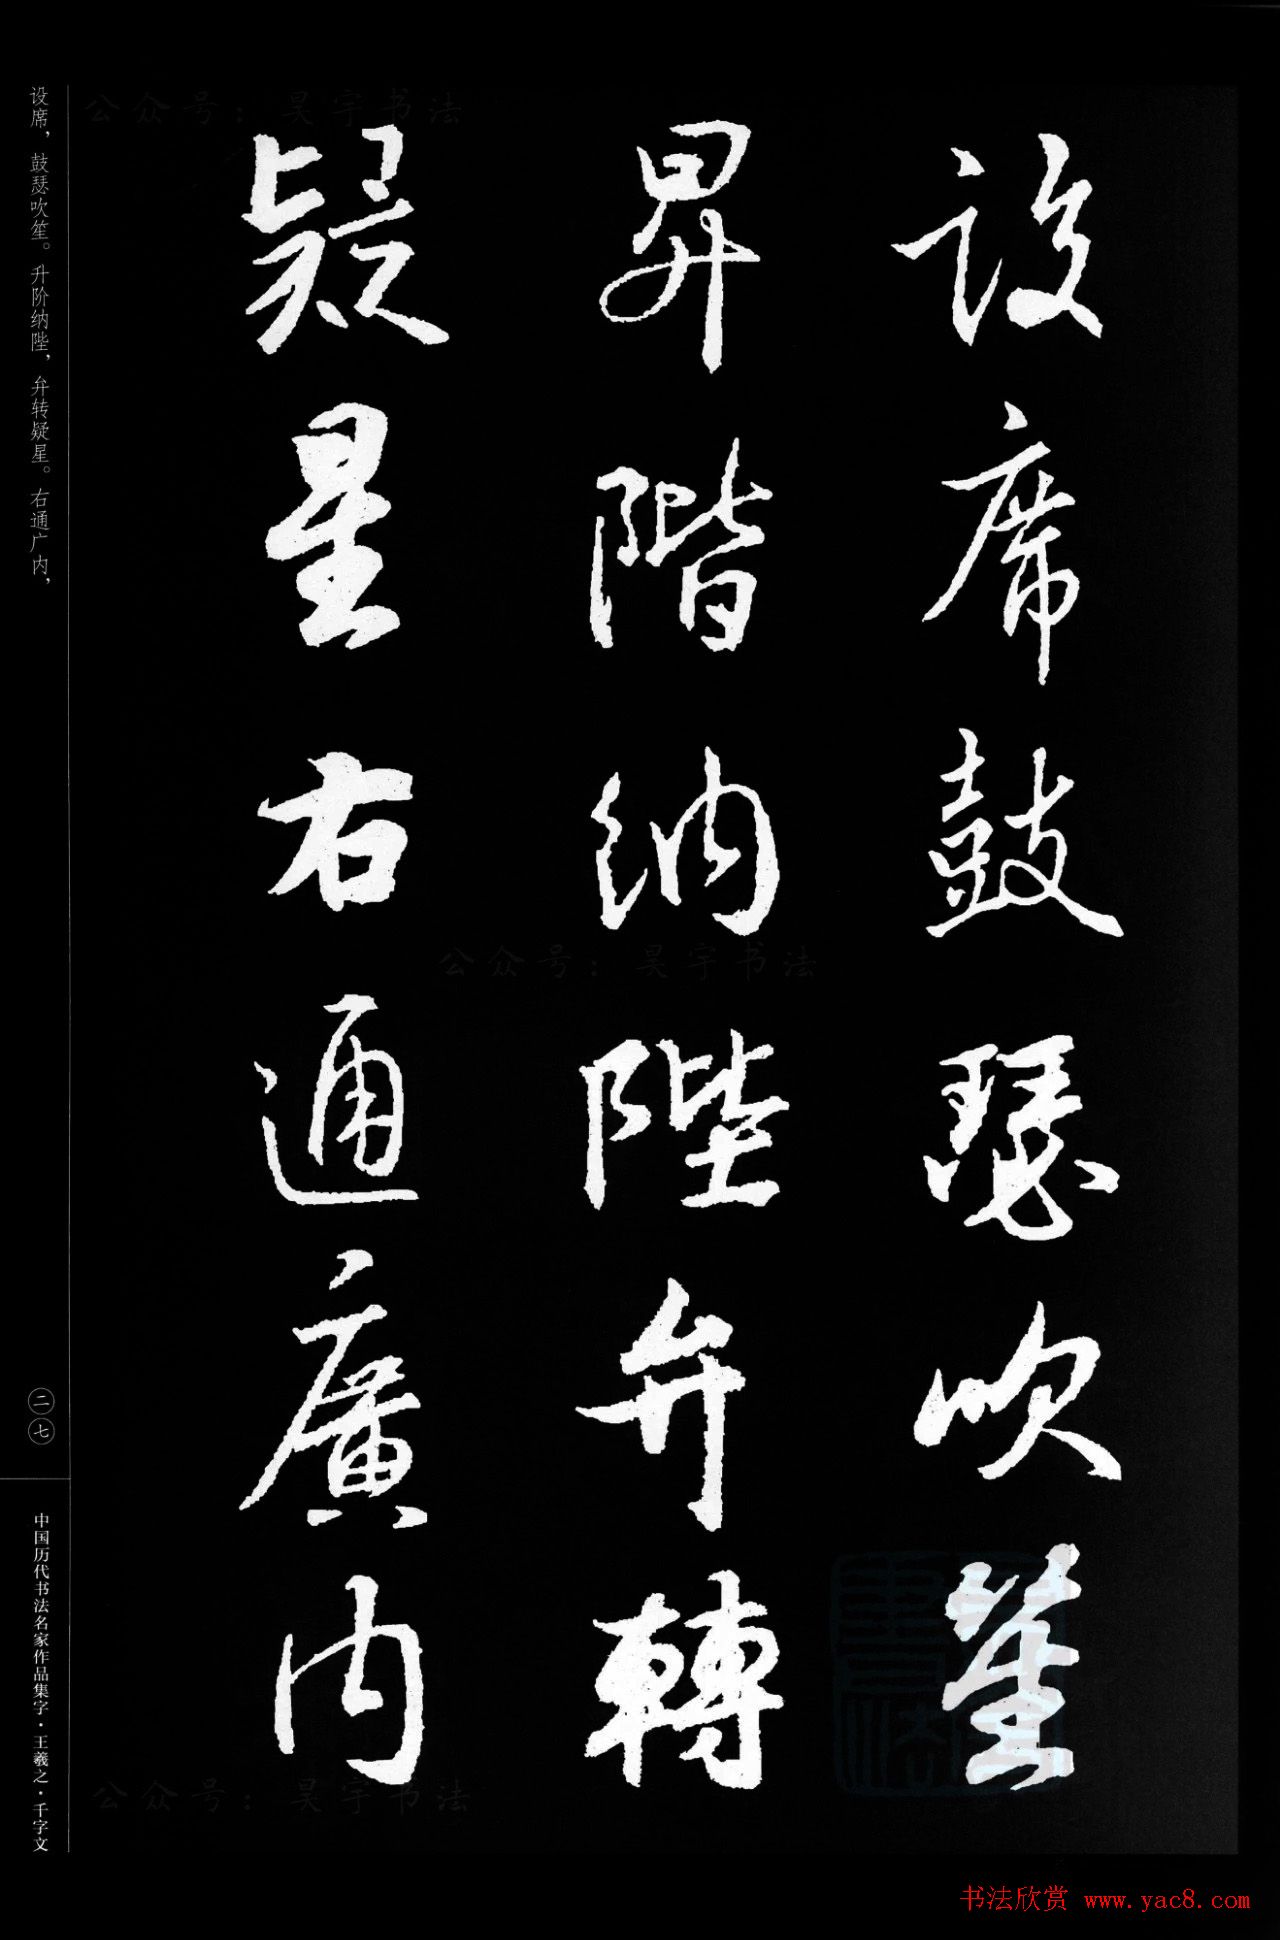 設席鼓瑟吹笙
昇階納陛弁轉
疑星右通廣内
设席，鼓瑟吹笙。升阶纳陛，弁转疑星。右通广内，
二七
中国历代书法名家作品集字·王羲之·千字文
公众号：昊宇书法
公众号：昊宇书法
公众号：昊宇书法
书法欣赏 www.yac8.com